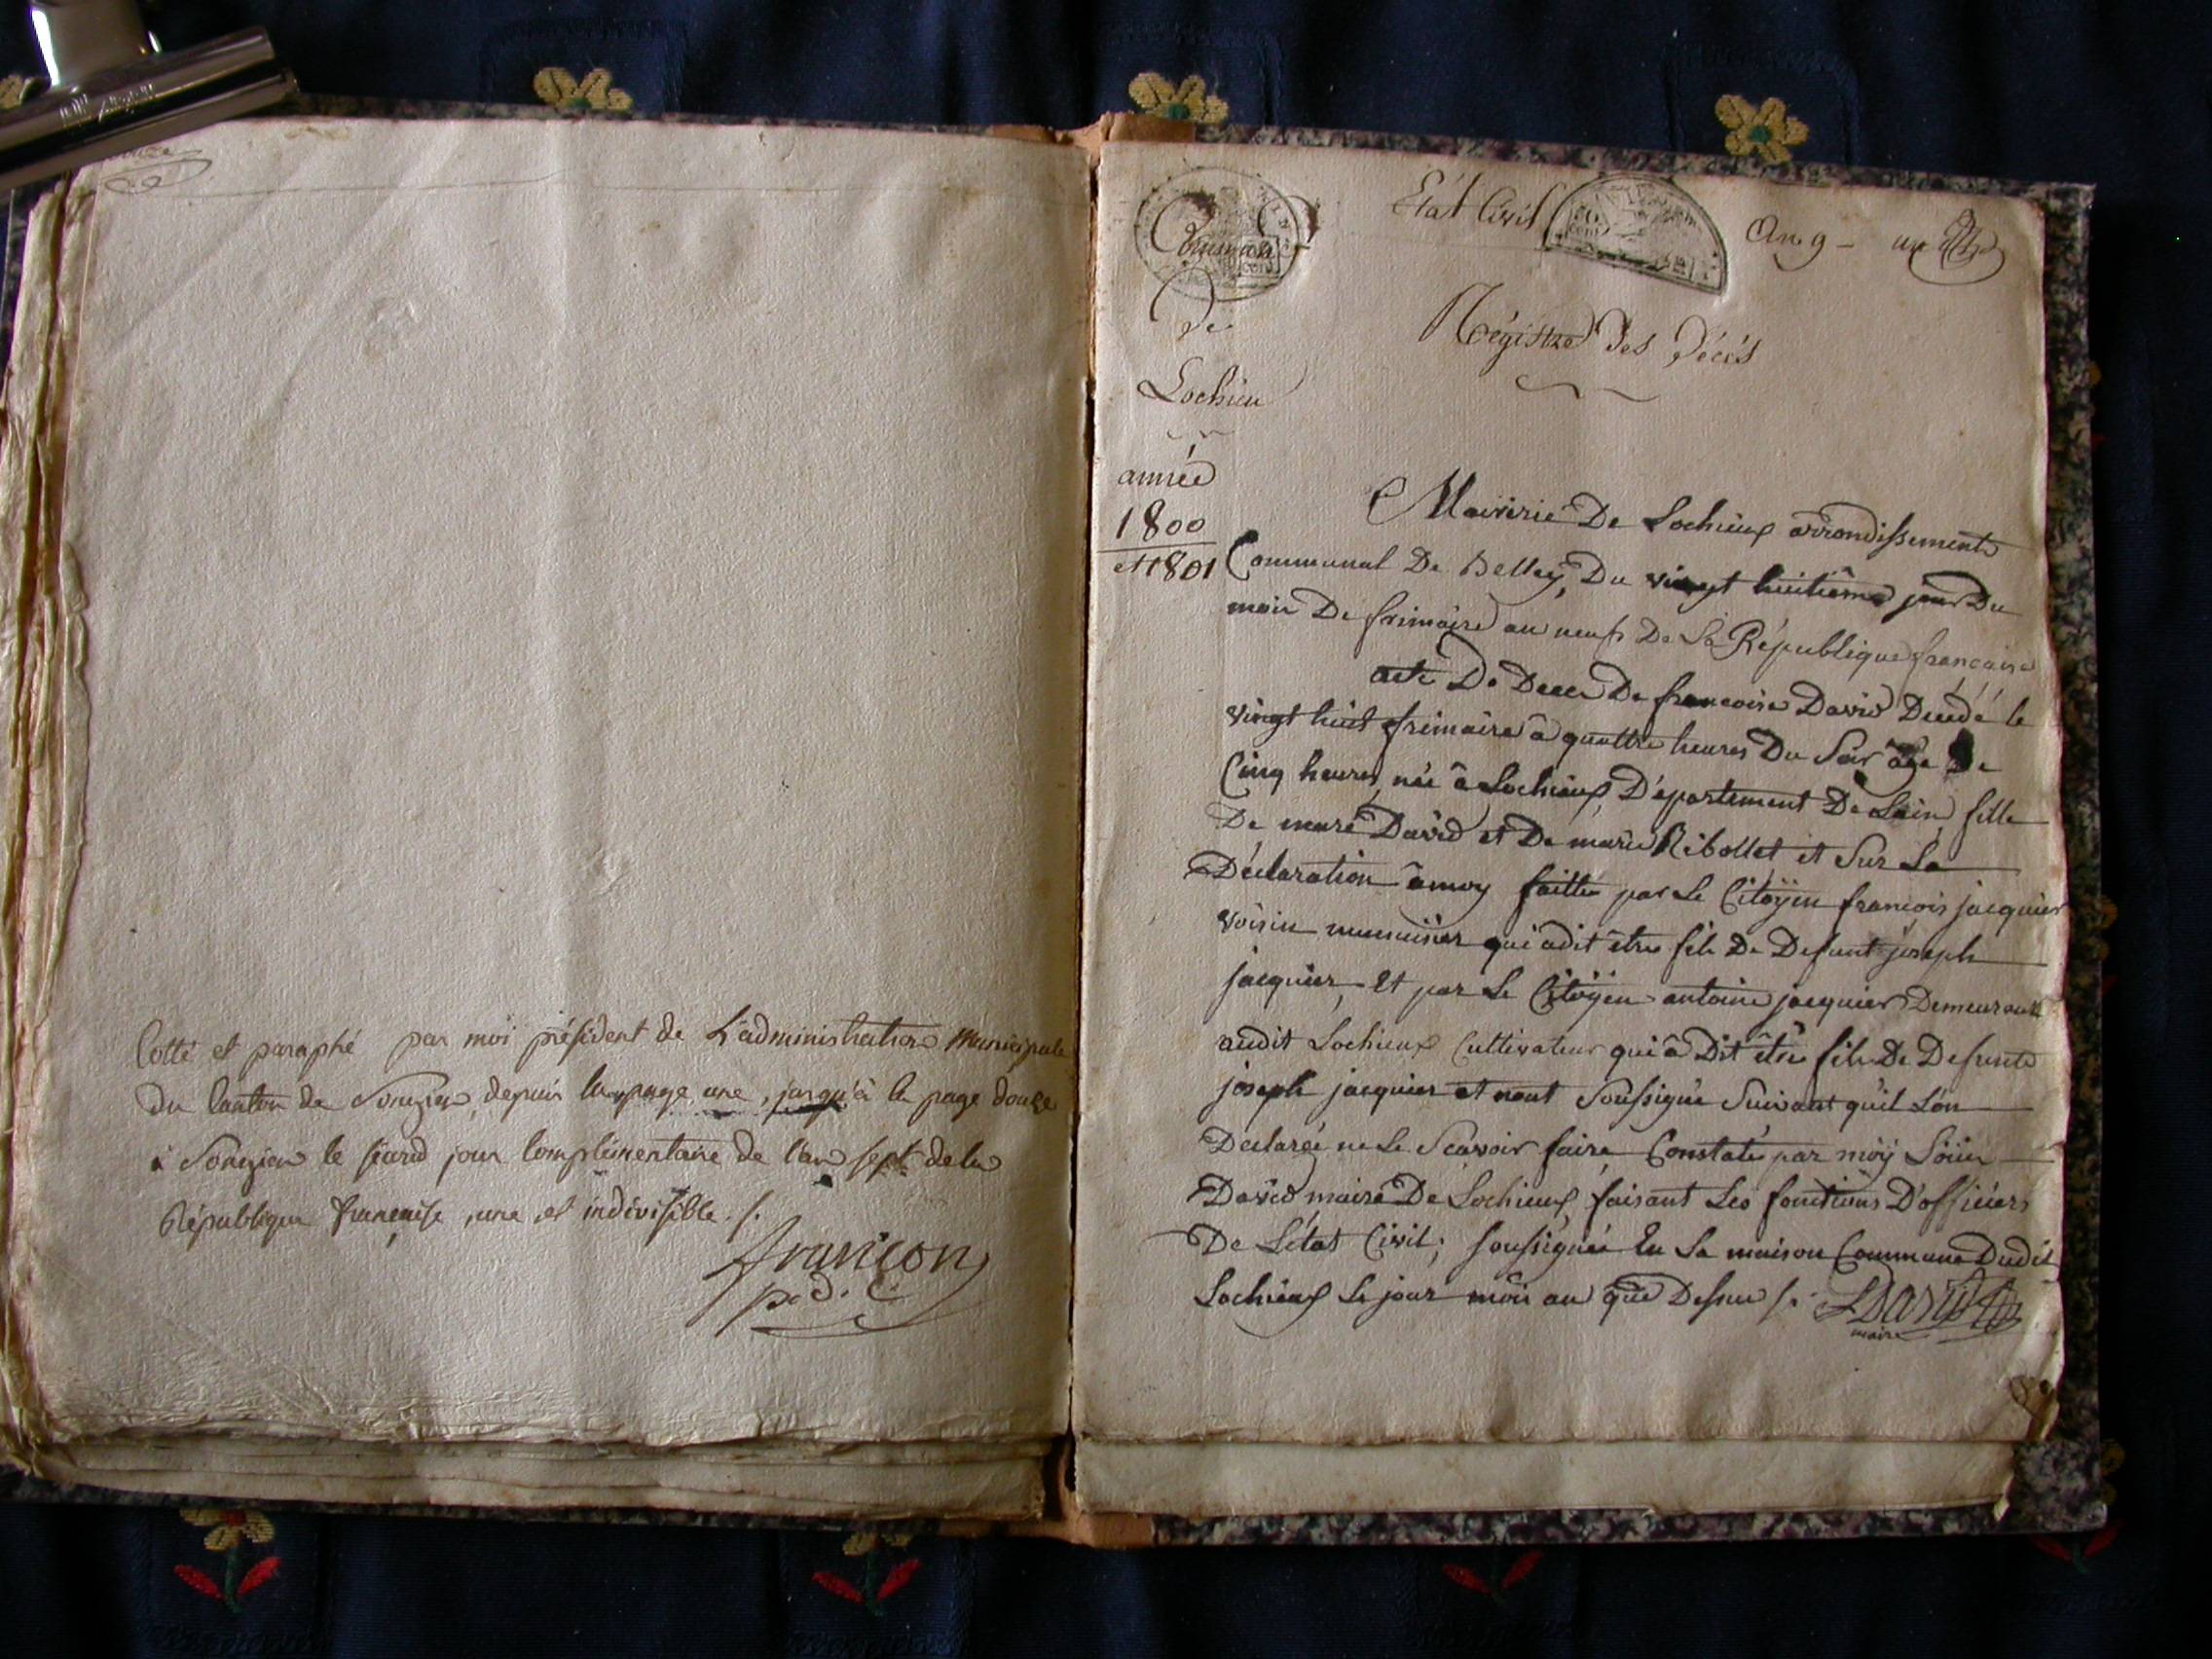 douze
Cotté et paraphé par moi président de L'administration Municipale
du Canton de Songieu, depuis la page une, jusqu'à la page douze
à Songieu le second jour Complémentaire de l'an sept de la
République française, une et indivisible ./.
françon
p. d. C.
Commune
de
Lochieu
année
1800
et 1801
Etat Civil
An 9 - un
Régistre des Décés
Mairerie De Lochieux arrondissement
Communal De Belley, Du vingt huitième jour Du
mois De frimaire an neuf De La République française
acte De Deces De francoise David Decedé le
vingt huit frimaire à quattre heures Du Soir âge De
Cinq heures, née à Lochieux Département De Lain fille
De David et De marie Ribollet et Sur La
Déclaration à moy faitte par Le Citoÿen francois jacquier
voisin qui a dit être fils De Defunt joseph
jacquier, Et par Le Citoÿen antoine jacquier Demeurant
audit Lochieux Cultivateur qui à Dit être fils De Defunt
joseph jacquier et n'ont Soussigné Suivant qu'il L'on
Declarée ne Le Scavoir faire, Constaté par moÿ
David maire De Lochieux faisant Les fonctions D'officiers
De L'état Civil; soussignée En La maison Commune Dudit
Lochieux Le jour mois an que Dessus /.
David
maire